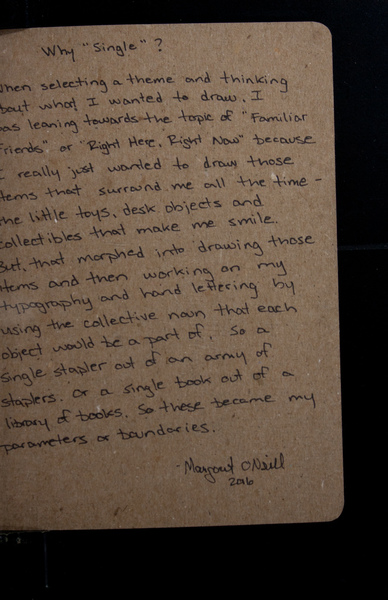 Why "Single" ?
When selecting a theme and thinking
about what I wanted to draw, I
was leaning towards the topic of "Familiar
Friends" or "Right Here, Right Now" because
I really just wanted to draw those
items that surround me all the time -
the little toys, desk objects and
collectibles that make me smile.
But, that morphed into drawing those
items and then working on my
typography and hand lettering by
using the collective noun that each
object would be a part of. So a
single stapler out of an army of
staplers. Or a single book out of a
library of books. So these became my
parameters or boundaries.
- Margaret O'Neill
2016